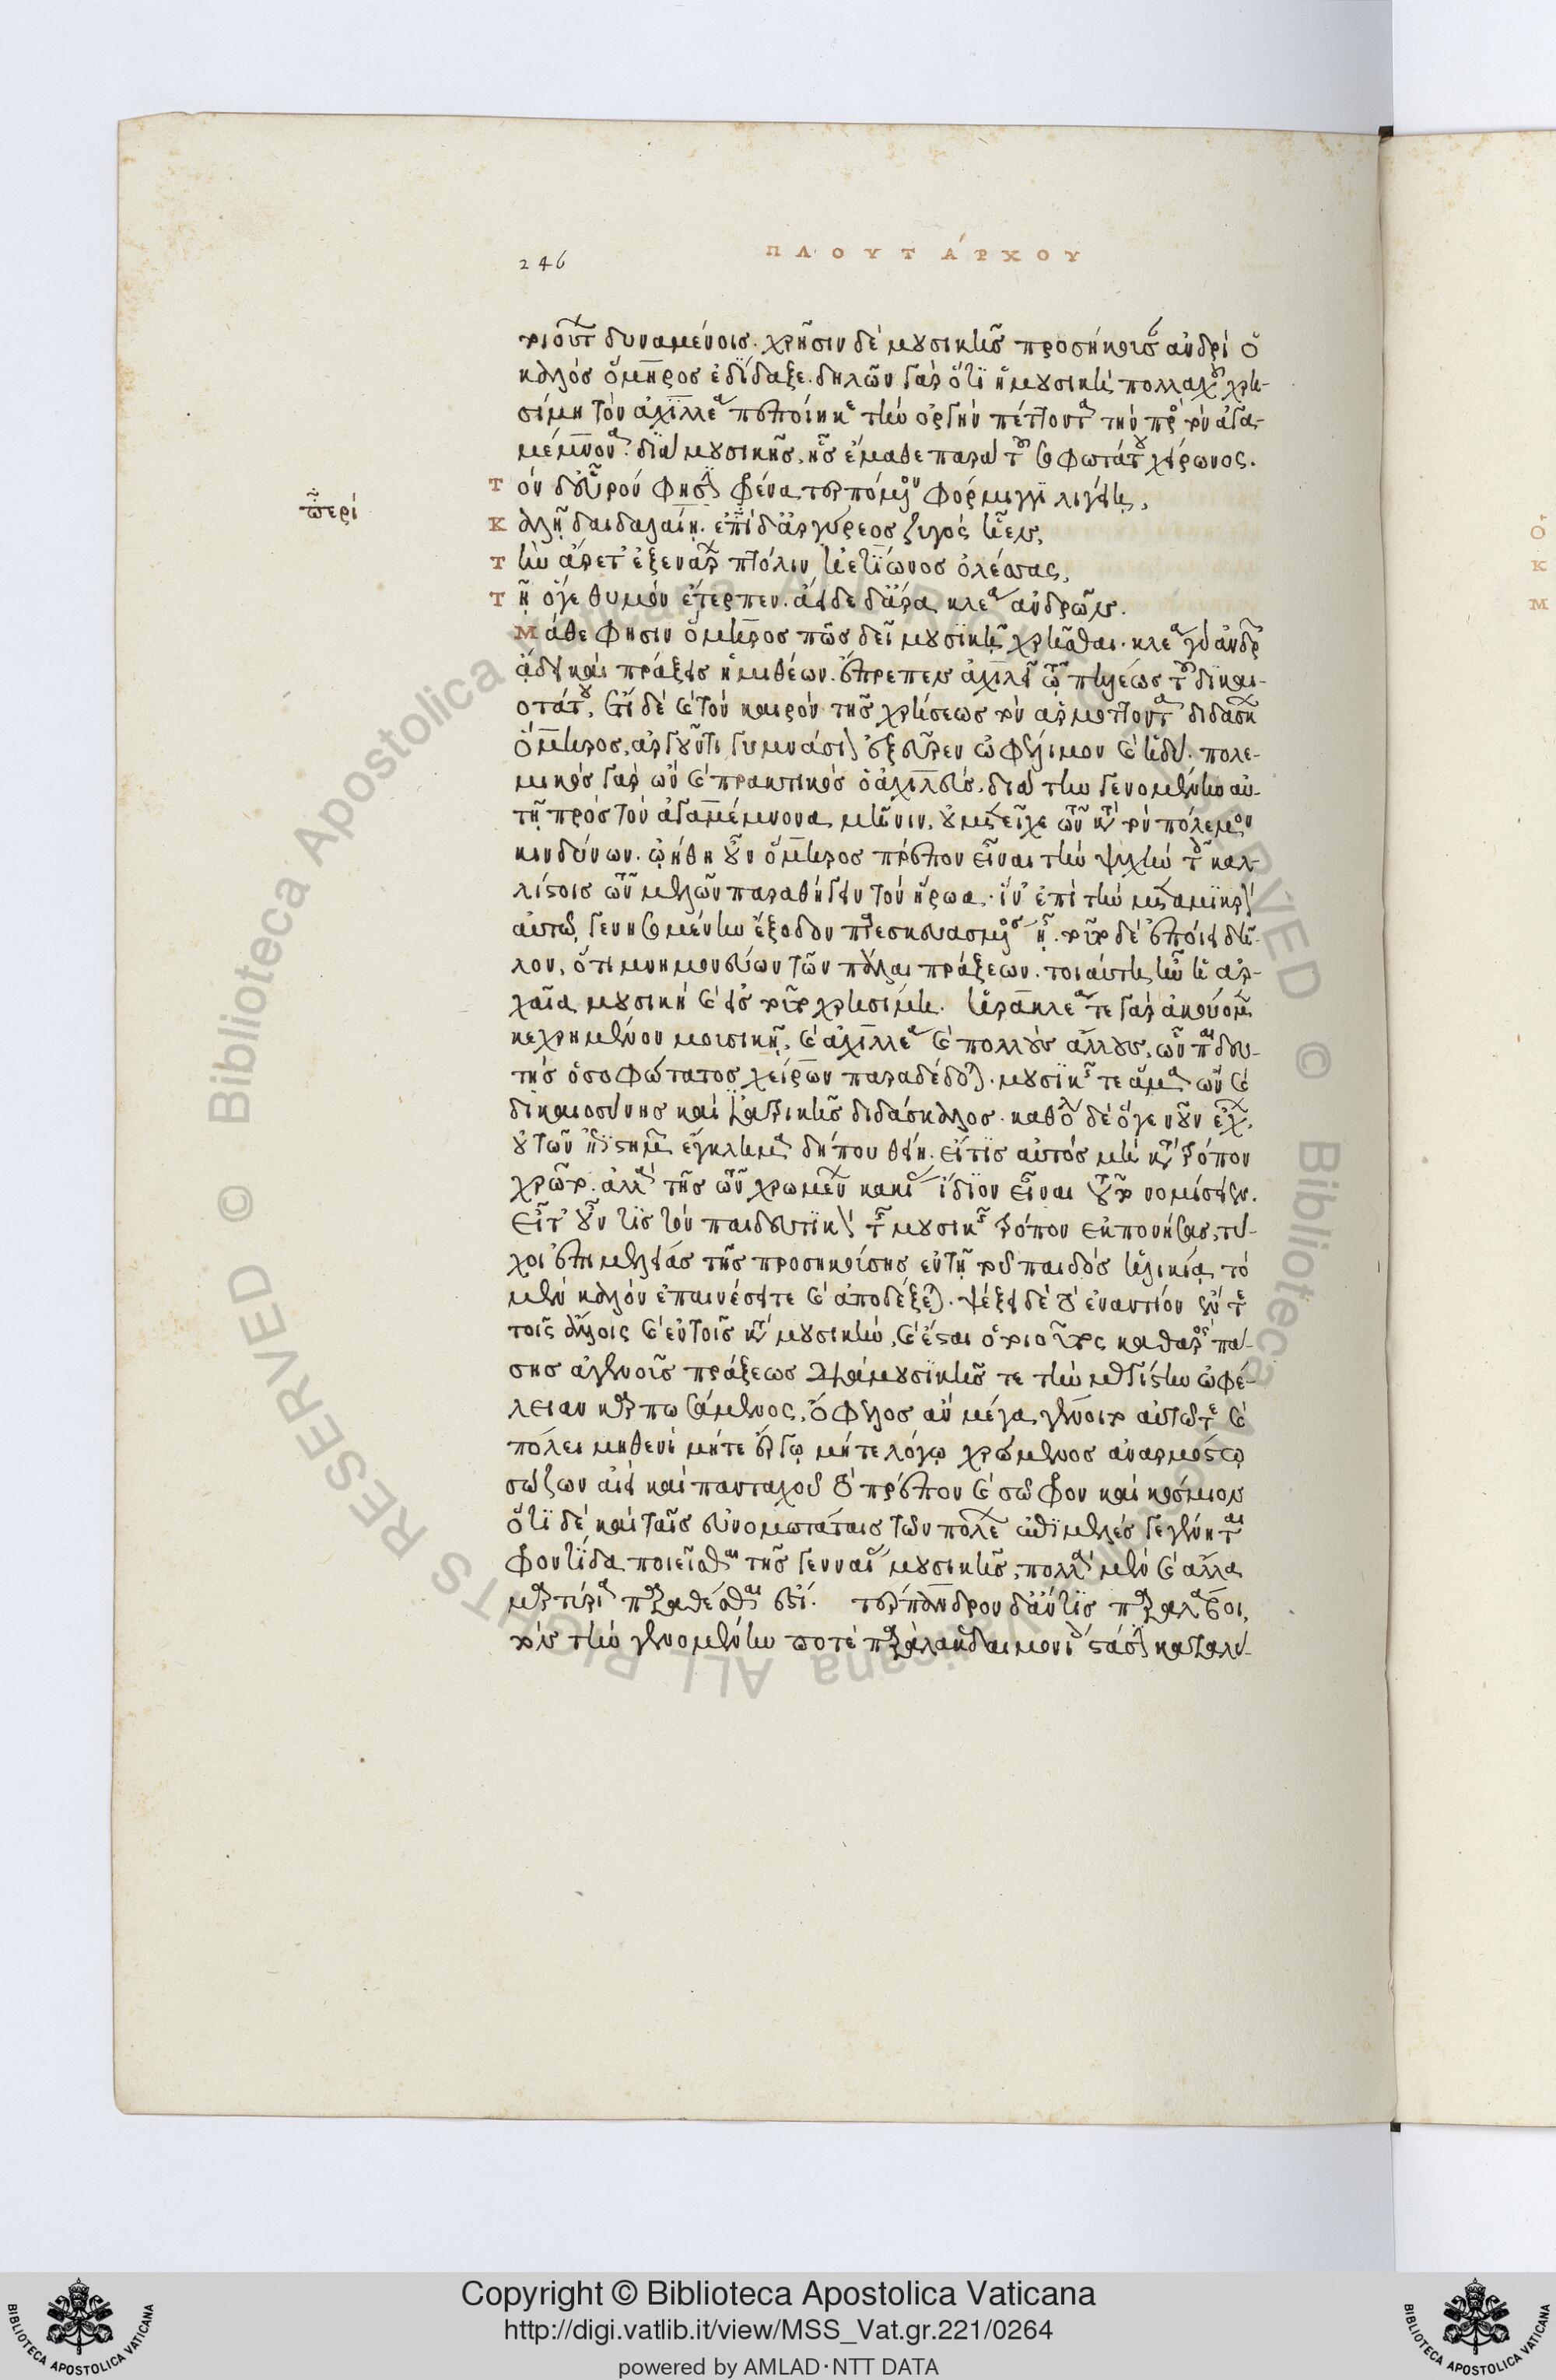 246
ΠΛΟΥΤΆΡΧΟΥ
ριοῦν δυναμένοις. χρῆσιν δὲ μουσικῆς προσήκουσαν ἀνδρὶ ὁ
καλὸς ὅμηρος ἐδίδαξε. δηλῶν γὰρ ὅτι ἡ μουσικὴ πολλαχοῦ χρη-
σίμη τὸν ἀχιλλέα πεποίηκε τὴν ὀργὴν πέττοντα τὴν πρὸς τὸν ἀγα-
μέμνονα. διὰ μουσικῆς, ἧς ἔμαθε παρὰ τοῦ σοφωτάτου χείρωνος.
Τὸν δ' εὗρον φησὶ φρένα τερπόμενον φόρμιγγι λιγείῃ,
περί
Καλῇ δαιδαλαίῃ. ἐπὶ δ' ἀργύρεος ζυγὸς ἦεν,
Τὴν ἄρετ' ἐξ ἐνάρων πτόλιν ἠετίωνος ὀλέσσας,
Τῇ ὅγε θυμὸν ἔτερπεν. ἄειδε δ' ἄρα κλέα ἀνδρῶν.
Μάθε φησὶν ὅμηρος πῶς δεῖ μουσικῇ χρῆσθαι. κλέα γὰρ ἀνδρῶν
ᾄδειν καὶ πράξεις ἡμιθέων. ἔπρεπεν ἀχιλλεῖ τῷ πηλέως τοῦ δικαι-
οτάτου, ἔτι δὲ καὶ τὸν καιρὸν τῆς χρήσεως τὸν ἁρμόττοντα διδάσκων
ὅμηρος, ἀργοῦντι γυμνάσιον ἐξεῦρεν ὠφέλιμον καὶ ἡδύ. πολε-
μικὸς γὰρ ὢν καὶ πρακτικὸς ὁ ἀχιλλεὺς, διὰ τὴν γενομένην αὐ-
τῇ πρὸς τὸν ἀγαμέμνονα μῆνιν, οὐ μετεῖχε τῶν κατὰ τὸν πόλεμον
κινδύνων. ᾠήθη οὖν ὅμηρος πρέπον εἶναι τὴν ψυχὴν τοῖς καλ-
λίστοις τῶν μελῶν παραθήγειν τὸν ἥρωα. ἵν' ἐπὶ τὴν μετὰ μικρὸν
αὐτῷ γενησομένην ἔξοδον παρεσκευασμένος ᾖ. τοῦτο δὲ ἐποίει δῆ-
λον, ὅτι μνημονεύων τῶν πάλαι πράξεων. τοιαύτη ἦν ἡ ἀρ-
χαῖα μουσικὴ καὶ εἰς τοῦτο χρησίμη. ἡρακλέα τε γὰρ ἀκούομεν
κεχρημένον μουσικῇ, καὶ ἀχιλλέα καὶ πολλοὺς ἄλλους, ὧν παιδευ-
τὴς ὁ σοφώτατος χείρων παραδέδοται. μουσικῆς τε ἅμα ὢν καὶ
δικαιοσύνης καὶ ἰατρικῆς διδάσκαλος. καθόλου δὲ ὅγε νοῦν ἔχων,
οὐ τῶν ἐπιστημῶν ἔγκλημα δήπου θείη. εἴ τις αὐτὸς μὴ κατὰ τρόπον
χρῶτο. ἀλλὰ τῆς τῶν χρωμένων κακίας ἴδιον εἶναι τοῦτο νομίσειεν.
Εἴτ' οὖν τις τὸν παιδευτικὸν τῆς μουσικῆς τρόπον ἐκπονήσας, τύ-
χοι ἐπιμελείας τῆς προσηκούσης ἐν τῇ τοῦ παιδὸς ἡλικίᾳ, τὸ
μὲν καλὸν ἐπαινέσει τε καὶ ἀποδέξεται. ψέξει δὲ τὸ ἐναντίον ἔν τε
τοῖς ἄλλοις καὶ ἐν τοῖς κατὰ μουσικὴν, καὶ ἔσται ὁ τοιοῦτος καθαρὸς πά-
σης ἀγεννοῦς πράξεως διὰ μουσικῆς τε τὴν μεγίστην ὠφέ-
λειαν καρπωσάμενος, ὄφελος ἂν μέγα γένοιτο αὐτῷ τε καὶ
πόλει μηδενὶ μήτε ἔργῳ μήτε λόγῳ χρώμενος ἀναρμόστῳ
σώζων ἀεὶ καὶ πανταχοῦ τὸ πρέπον καὶ σῶφρον καὶ κόσμιον
ὅτι δὲ καὶ ταῖς εὐνομωτάταις τῶν πόλεων ἐπιμελὲς γεγένηται
φροντίδα ποιεῖσθαι τῆς γενναίας μουσικῆς, πολλὰ μὲν καὶ ἄλλα
μαρτύρια παραθέσθαι ἐστί. τέρπανδρον δ' ἄν τις παραλάβοι,
τὸν τὴν γενομένην ποτὲ παρὰ λακεδαιμονίοις στάσιν καταλύ-